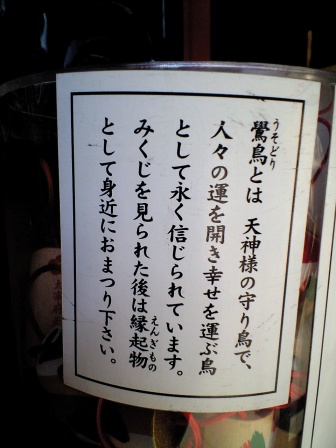 鷽鳥とは 天神様の守り鳥で、
うそどり
人々の運を開き幸せを運ぶ鳥
として永く信じられています。
みくじを見られた後は縁起物
えんぎもの
として身近におまつり下さい。